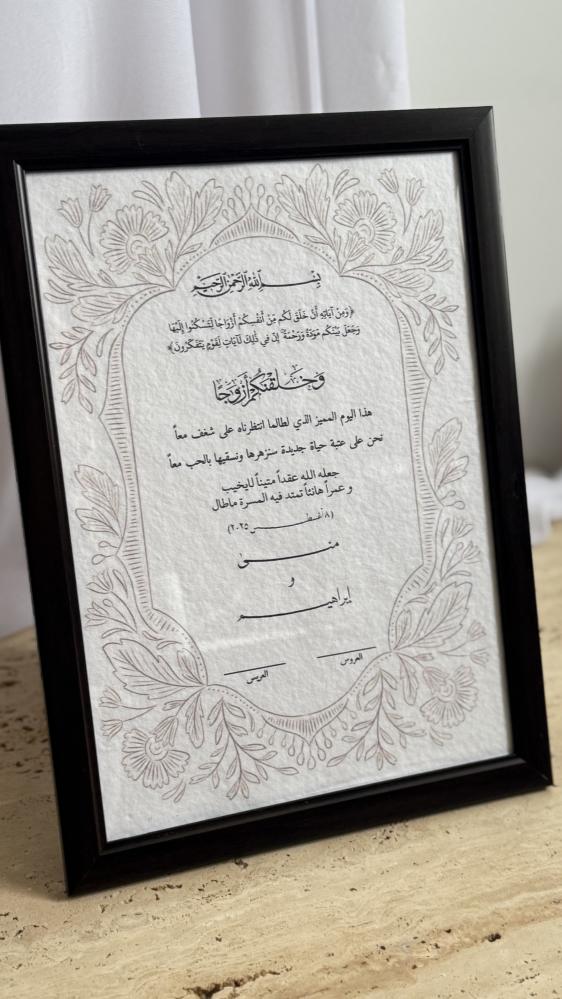 بسم الله الرحمن الرحيم
﴿وَمِنْ آيَاتِهِ أَنْ خَلَقَ لَكُم مِّنْ أَنفُسِكُمْ أَزْوَاجًا لِّتَسْكُنُوا إِلَيْهَا
وَجَعَلَ بَيْنَكُم مَّوَدَّةً وَرَحْمَةً ۚ إِنَّ فِي ذَٰلِكَ لَآيَاتٍ لِّقَوْمٍ يَتَفَكَّرُونَ﴾
وَخَلَقْنَاكُمْ أَزْوَاجًا
هذا اليوم المميز الذي لطالما انتظرناه على شغف معاً
نحن على عتبة حياة جديدة سنزهرها ونسقيها بالحب معاً
جعله الله عقداً متيناً لايخيب
و عمراً هانئاً تمتد فيه المسرة ماطال
(٨ أغسطـــس ٢٠٢٥)
منـــى
و
إبراهيـــم
العروس
العريس